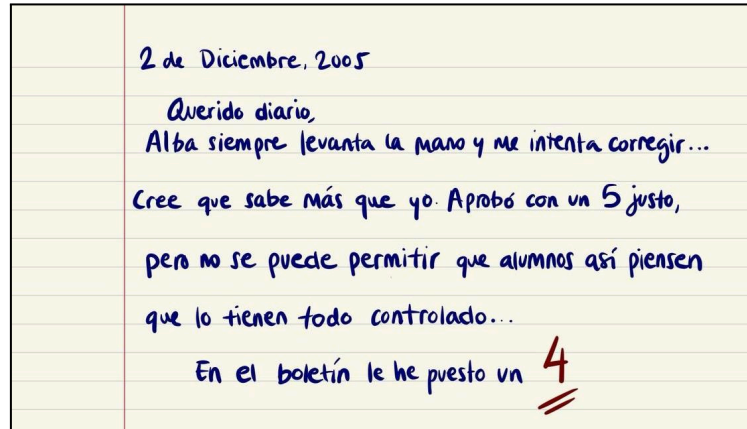 2 de Diciembre, 2005
Querido diario,
Alba siempre levanta la mano y me intenta corregir...
Cree que sabe más que yo. Aprobó con un 5 justo,
pero no se puede permitir que alumnos así piensen
que lo tienen todo controlado...
En el boletín le he puesto un 4